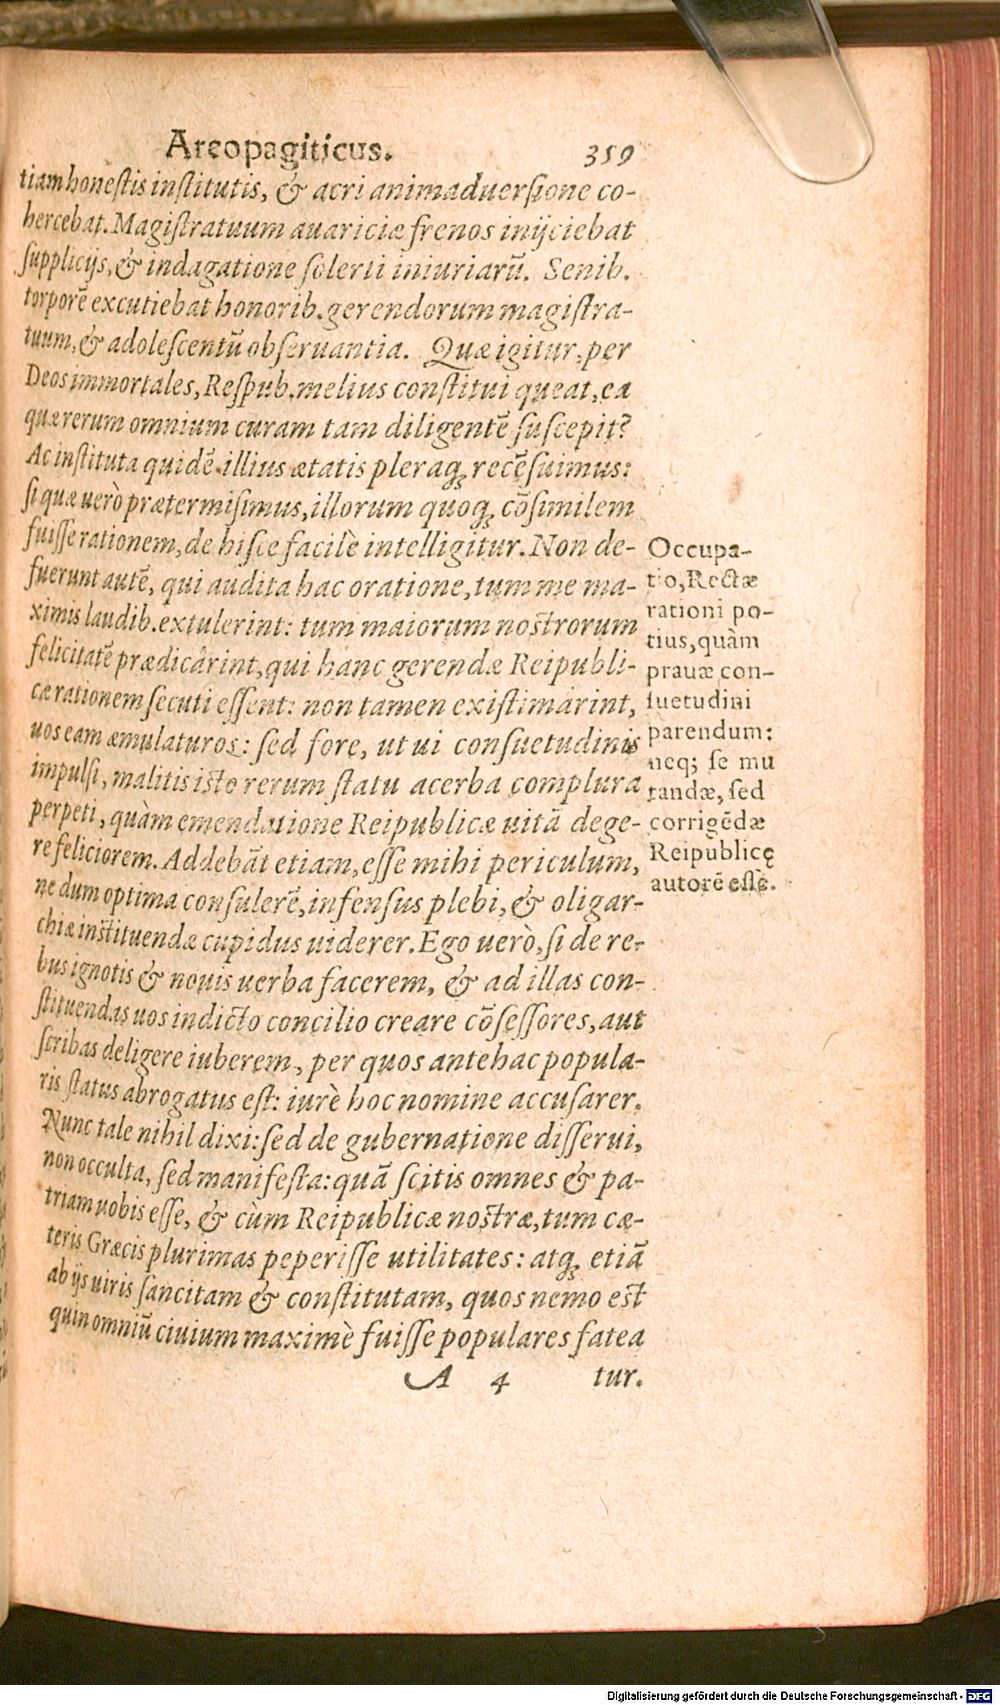 Areopagiticus. 359
tiam honestis institutis, & acri animaduersione co-
hercebat. Magistratuum auariciæ frenos inijciebat
supplicijs, & indagatione solerti iniuriarū. Senib.
torporē excutiebat honorib. gerendorum magistra-
tuum, & adolescentū obseruantia. Quæ igitur, per
Deos immortales, Respub. melius constitui queat, ea
quæ rerum omnium curam tam diligentē suscepit?
Ac instituta quidē illius ætatis pleraq; recēsuimus:
si quæ uerò prætermisimus, illorum quoq; cōsimilem
fuisse rationem, de hisce facilè intelligitur. Non de-
fuerunt autē, qui audita hac oratione, tum me ma-
ximis laudib. extulerint: tum maiorum nostrorum
felicitatē prædicârint, qui hanc gerendæ Reipubli-
cæ rationem secuti essent: non tamen existimârint,
uos eam æmulaturos: sed fore, ut ui consuetudinis
impulsi, malitis isto rerum statu acerba complura
perpeti, quàm emendatione Reipublicæ uitā dege-
re feliciorem. Addebāt etiam, esse mihi periculum,
ne dum optima consulerē, infensus plebi, & oligar-
chiæ instituendæ cupidus uiderer. Ego uerò, si de re-
bus ignotis & nouis uerba facerem, & ad illas con-
stituendas uos indicto concilio creare cōsessores, aut
scribas deligere iuberem, per quos antehac popula-
ris status abrogatus est: iurè hoc nomine accusarer.
Nunc tale nihil dixi: sed de gubernatione disserui,
non occulta, sed manifesta: quā scitis omnes & pa-
triam uobis esse, & cùm Reipublicæ nostræ, tum cæ-
teris Græcis plurimas peperisse utilitates: atq; etiā
ab ijs uiris sancitam & constitutam, quos nemo est
quin omniū ciuium maximè fuisse populares fatea
A 4 tur.
Occupa-
tio, Rectæ
rationi po-
tius, quàm
prauæ con-
suetudini
parendum:
neq; se mu
tandæ, sed
corrigēdæ
Reipublicę
autorē esse.
Digitalisierung gefördert durch die Deutsche Forschungsgemeinschaft - DFG